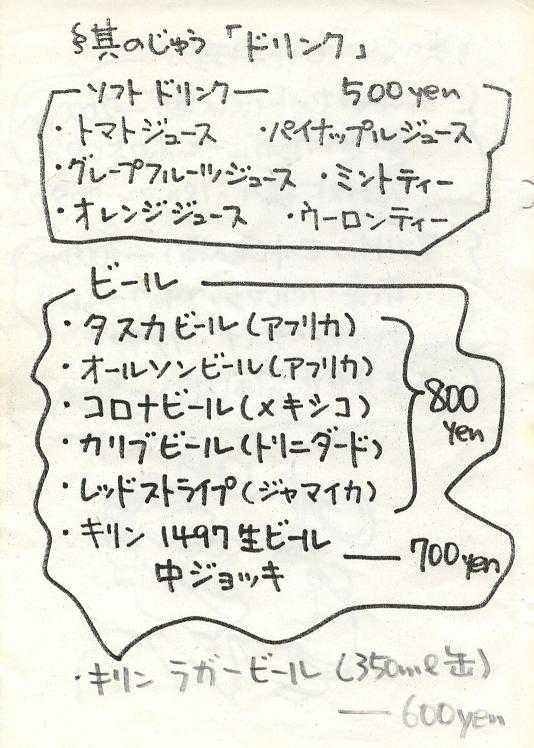 其のじゅう「ドリンク」
ソフトドリンク 500yen
・トマトジュース ・パイナップルジュース
・グレープフルーツジュース ・ミントティー
・オレンジジュース ・ウーロンティー
ビール
・タスカビール(アフリカ)
・オールソンビール(アフリカ)
・コロナビール(メキシコ)
800
・カリブビール(トリニダード)
yen
・レッドストライプ(ジャマイカ)
・キリン 1497生ビール
700yen
中ジョッキ
・キリン ラガービール (350ml缶)
600yen